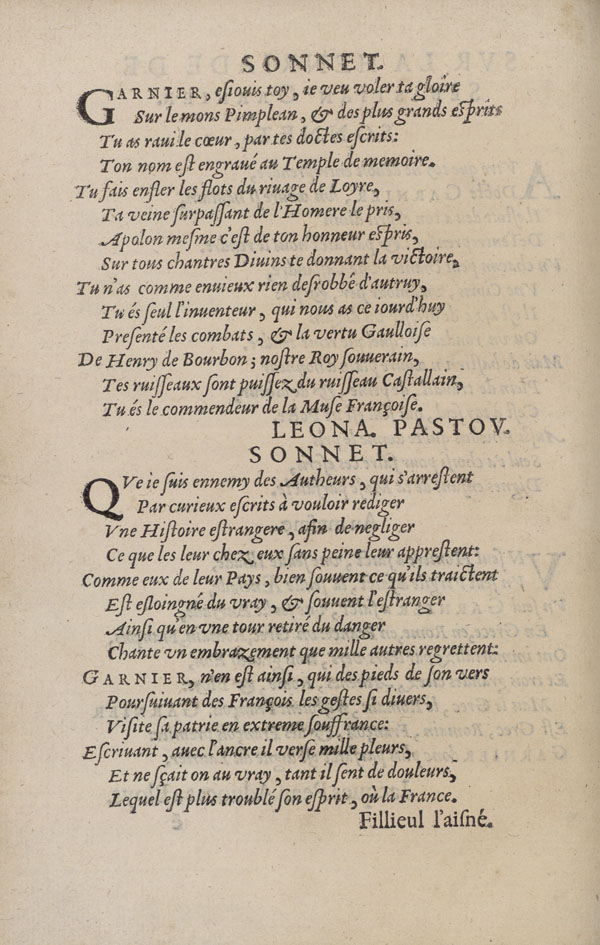 SONNET.
GARNIER, esiouis toy, ie veu voler ta gloire
Sur le mons Pimplean, & des plus grands eſprits
Tu as raui le cœur, par tes doctes eſcrits:
Ton nom eſt engraué au Temple de memoire.
Tu fais enfler les flots du riuage de Loyre,
Ta veine ſurpaſſant de l'Homere le pris,
Apolon meſme c'eſt de ton honneur eſpris,
Sur tous chantres Diuins te donnant la victoire,
Tu n'as comme enuieux rien deſrobbé d'autruy,
Tu és ſeul l'inuenteur, qui nous as ce iourd'huy
Preſenté les combats, & la vertu Gaulloiſe
De Henry de Bourbon; noſtre Roy ſouuerain,
Tes ruiſſeaux ſont puiſſez du ruiſſeau Caſtallain,
Tu és le commendeur de la Muſe Françoiſe.
LEONA. PASTOV.
SONNET.
QVe ie ſuis ennemy des Autheurs, qui s'arreſtent
Par curieux eſcrits à vouloir rediger
Vne Hiſtoire eſtrangere, afin de negliger
Ce que les leur chez eux ſans peine leur appreſtent:
Comme eux de leur Pays, bien ſouuent ce qu'ils traictent
Eſt eſloingné du vray, & ſouuent l'eſtranger
Ainſi qu'en vne tour retiré du danger
Chante vn embrazement que mille autres regrettent:
GARNIER, n'en eſt ainſi, qui des pieds de ſon vers
Pourſuiuant des François les geſtes ſi diuers,
Viſite ſa patrie en extreme ſouffrance:
Eſcriuant, auec l'ancre il verſe mille pleurs,
Et ne ſçait on au vray, tant il ſent de douleurs,
Lequel eſt plus troublé ſon eſprit, où la France.
Fillieul l'aiſné.